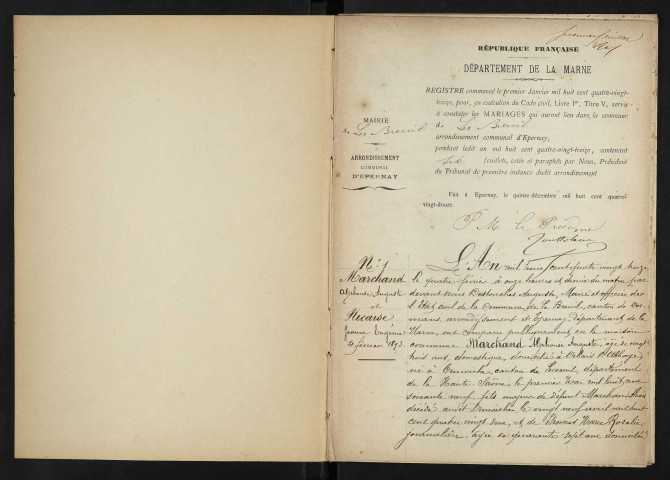 premier feuillet
RÉPUBLIQUE FRANÇAISE
DÉPARTEMENT DE LA MARNE
REGISTRE commencé le premier Janvier mil huit cent quatre-vingt-
treize, pour, en exécution du Code civil, Livre Ier, Titre V, servir
à constater les MARIAGES qui auront lieu dans la commune
de Le Breuil
arrondissement communal d'Epernay,
pendant ledit an mil huit cent quatre-vingt-treize, contenant
feuillets, cotés et paraphés par Nous, Président
du Tribunal de première instance dudit arrondissement.
Fait à Epernay, le quinze décembre mil huit cent quatre-
vingt-douze.
P. M. le Président
MAIRIE
de Le Breuil
ARRONDISSEMENT
COMMUNAL
D'EPERNAY
No 1
Marchand
Alphonse Auguste
et
Nicaise
Jeanne Eugénie
4 février 1893
L'An mil huit cent quatre vingt treize
le quatre février à onze heures et demie du matin, par
devant Nous Auguste, Maire et officier de
l'Etat civil de la commune de Le Breuil, canton de
arrondissement d'Epernay, département de la
Marne, ont comparu publiquement en la maison
commune Marchand Alphonse Auguste, âgé de vingt
trois ans, domestique, domicilié à Orbais l'Abbaye
né à canton de Luxeuil, département
de la Haute-Saône le premier mai mil huit cent
soixante neuf, fils majeur de défunt Marchand
décédé audit le vingt neuf avril mil huit
cent quatre vingt et de Thomas Marie Rosalie
journalière, âgée de quarante sept ans, domiciliée